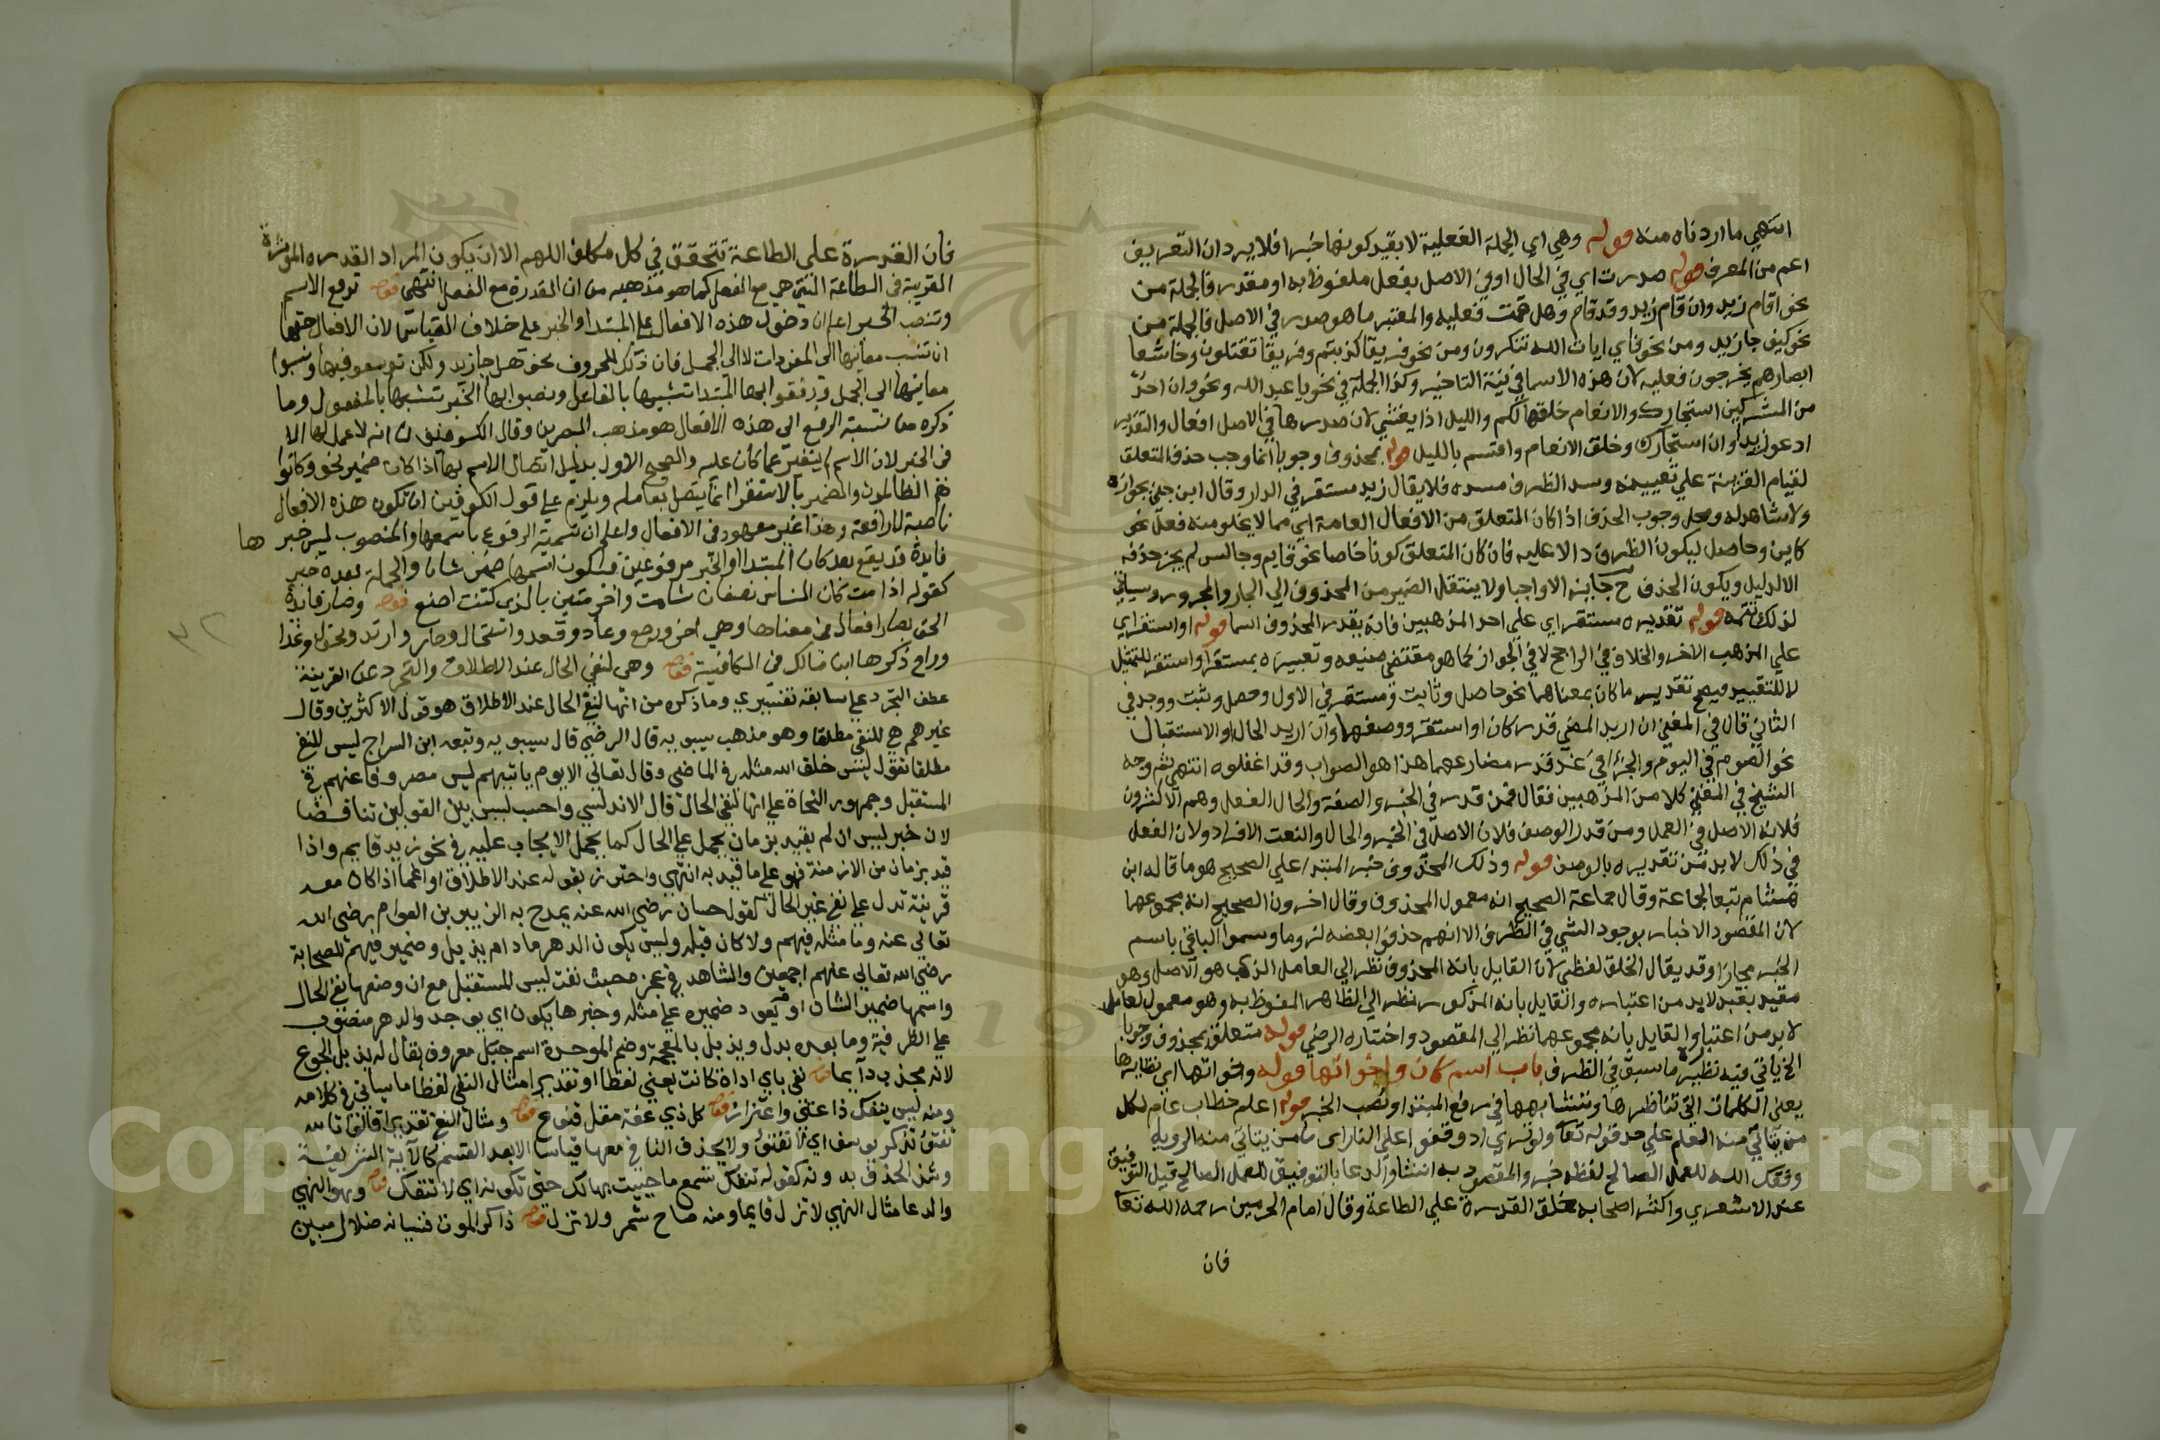 انتهي ما اردناه منه قوله وهي اي الجملة الفعلية لا بقيد كونها خبرا فلا يرد ان التعريف
اعم من المعرف قوله صدرت اي في الحال او في الاصل بفعل ملفوظ به او مقدر فالجملة من
نحو اقام زيد وان قام زيد وقد قام وهل قمت فعليه والمعتبر ما هو صدر في الاصل فالجملة من
نحو كيف جا زيد ومن نحو فاي ايات الله تنكرون ومن نحو فريقا كذبتم وفريقا تقتلون وخاشعا
ابصارهم يخرجون فعليه لان هذه الاسما في نية التاخير وكذا الجملة في نحو يا عبد الله ونحو وان احد
من المشركين استجارك والانعام خلقها لكم والليل اذا يغشي لان صدرها في الاصل افعال والتقدير
ادعو زيدا وان استجارك وخلق الانعام واقسم بالليل قوله بمحذوف وجوبا انما وجب حذف المتعلق
لقيام القرينة علي تعيينه وسد الظرف مسده فلا يقال زيد مستقر في الدار وقال ابن جني بجوازه
ولا شاهد له ومحل وجوب الحذف اذا كان المتعلق من الافعال العامة اي مما لا يخلو منه فعل نحو
كاين وحاصل ليكون الظرف دالا عليه فان كان المتعلق كونا خاصا نحو قايم وجالس لم يجز حذفه
الا لدليل ويكون الحذف ح جايزا لا واجبا ولا ينتقل الضمير من المحذوف الي الجار والمجرور وسياتي
لذلك تتمه قوله تقديره مستقر اي علي احد المذهبين فانه يقدر المحذوف اسما قوله او استقر اي
علي المذهب الاخر والخلاف في الراجح لا في الجواز كما هو مقتضي صنيعه وتعبيره بمستقر او استقر للتمثيل
لا للتقييد فيصح تقدير ما كان بمعناهما نحو حاصل وثابت ومستقر في الاول وحصل وثبت ووجد في
الثاني قال في المغني ان اريد المضي قدر كان او استقر ووصفهما وان اريد الحال او الاستقبال
نحو الصوم في اليوم والجزا في غد قدر مضارعهما هذا هو الصواب وقد اغفلوه انتهي ثم وجه
الشيخ في المغني كلا من المذهبين فقال فمن قدر في الخبر والصفة والحال الفعل وهم الاكثرون
فلانه الاصل في العمل ومن قدر الوصف فلان الاصل في الخبر والحال والنعت الافراد ولان الفعل
في ذلك لا بد من تقديره بالوصف قوله وذلك المحذوف خبر المبتدا علي الصحيح هو ما قاله ابن
هشام تبعا لجاعة وقال جماعة الصحيح انه معمول المحذوف وقال اخرون الصحيح انه مجموعهما
لان المقصود الاخبار بوجود الشي في الظرف الا انهم حذفوا بعضه لزوما وسموا الباقي باسم
الخبر مجازا وقد يقال الخلف لفظي لان القايل بانه المحذوف نظر الي العامل الذي هو الاصل وهو
مقيد بقيد لا بد من اعتباره والقايل بانه المذكور نظر الي الظاهر الملفوظ به وهو معمول لعامل
لا بد من اعتباره والقايل بانه مجموعهما نظر الي المقصود واختاره الرضي قوله متعلق بمحذوف وجوبا
الخ ياتي فيه نظير ما سبق في الظرف باب اسم كان واخواتها قوله واخواتها اي نظايرها
يعني الكلمات التي تناظرها وتشابهها في رفع المبتدا ونصب الخبر قوله اعلم خطاب عام لكل
من يتاتي منه العلم علي حد قوله تعا ولو تري اذ وقفوا علي النار اي كل من يتاتي منه الروية
وفقك الله للعمل الصالح لفظه خبر والمقصود به انشاء الدعا بالتوفيق للعمل الصالح قيل التوفيق
عند الاشعري واكثر اصحابه خلق القدرة علي الطاعة وقال امام الحرمين رحمه الله تعا
فان
فان القدرة علي الطاعة تتحقق في كل مكلف اللهم الا ان يكون المراد القدره المؤثرة
القريبة في الطاعة التي هي مع الفعل كما هو مذهبه من ان القدرة مع الفعل انتهى قوله ترفع الاسم
وتنصب الخبر اعلم ان دخول هذه الافعال علي المبتدا والخبر علي خلاف القياس لان الافعال حقها
ان تنسب معانيها الي المفردات لا الي الجمل فان ذلك للحروف نحو هل جا زيد ولكن توسعوا فيها ونسبوا
معانيها الي الجمل فرفعوا بها المبتدا تشبيها بالفاعل ونصبوا بها الخبر تشبيها بالمفعول وما
ذكره من نسبة الرفع الي هذه الافعال هو مذهب البصريين وقال الكوفيون انه لا عمل لها الا
في الخبر لان الاسم لم يتغير عما كان عليه والصحيح الاول بدليل اتصال الاسم بها اذا كان ضمير نحو وكانوا
هم الظالمون والمضمر بالاستقرا انما يتصل بعامله ويلزم علي قول الكوفيين ان تكون هذه الافعال
ناصبة لا رافعة وهذا غير معهود في الافعال واعلم ان تسمية المرفوع باسمها والمنصوب ليس خبر
ها
فايدة قد يقع بعد كان المبتدا والخبر مرفوعين فيكون اسمها ضمير شان والجملة بعده خبر
كقوله اذا مت كان الناس نصفان شامت واخر مثن بالذي كنت اصنع قوله وصار فايدة
الحق بصار افعال في معناها وهي اض ورجع وعاد وقعد واستحال وحار وارتد وتحول وغدا
وراح ذكرها ابن مالك في الكافية قوله وهي لنفي الحال عند الاطلاق والتجرد عن القرينة
عطف التجرد علي سابقه تفسيري وما ذكره من انها لنفي الحال عند الاطلاق هو قول الاكثرين وقال
غيرهم هي للنفي مطلقا وهو مذهب سيبويه قال الرضي قال سيبويه وتبعه ابن السراج ليس للنفي
مطلقا تقول ليس خلق الله مثله في الماضي وقال تعالي الا يوم ياتيهم ليس مصروفا عنهم في
المستقبل وجمهور النحاة علي انها لنفي الحال قال الاندلسي واحسب ليس بين القولين تناقضا
لان خبر ليس ان لم يقيد بزمان يحمل علي الحال كما يحمل الايجاب عليه في نحو زيد قايم واذا
قيد بزمان من الازمنة فهو علي ما قيد به انتهي واحترز بقوله عند الاطلاق او عما اذا كان معه
قرينة تدل علي نفي غير الحال لقول حسان رضي الله عنه يمدح به الزبير بن العوام رضي الله
تعالي عنه وما مثله فيهم ولا كان قبله وليس يكون الدهر ما دام يذبل وضمير فيهم للصحابة
رضي الله تعالي عنهم اجمعين والشاهد في عجزه حيث نفت ليس للمستقبل مع ان وضعها نفي الحال
واسمها ضمير الشان او يعود ضميره علي مثله وخبرها يكون اي يوجد والدهر منصوب
علي الظرفية وما بعده بدل ويذبل بالمعجمة وضم الموحدة اسم جبل معروف يقال له يذبل الجوع
لانه مجذب دايما قوله نفي باي اداة كانت يعني لفظا او تقديرا مثال النفي لفظا ما سياتي في كلامه
ومنه ليس ينفك ذا غني واعتزاز قوله كل ذي عفة مقل قنوع قوله ومثال النفي تقديرا قالوا تالله
تفتؤ تذكر يوسف اي لا تفتؤ ولا يحذف النافي معها قياسا الا بعد القسم كالاية الشريفة
وشذ الحذف بدونه كقوله تنفك تسمع ما حييت بهالك حتى تكونه اي لا تنفك قوله وهو النهي
والدعا مثال النهي لا تزل قايما ومنه صاح شمر ولا تزل قوله ذاكر الموت فنسيانه ضلال مبين